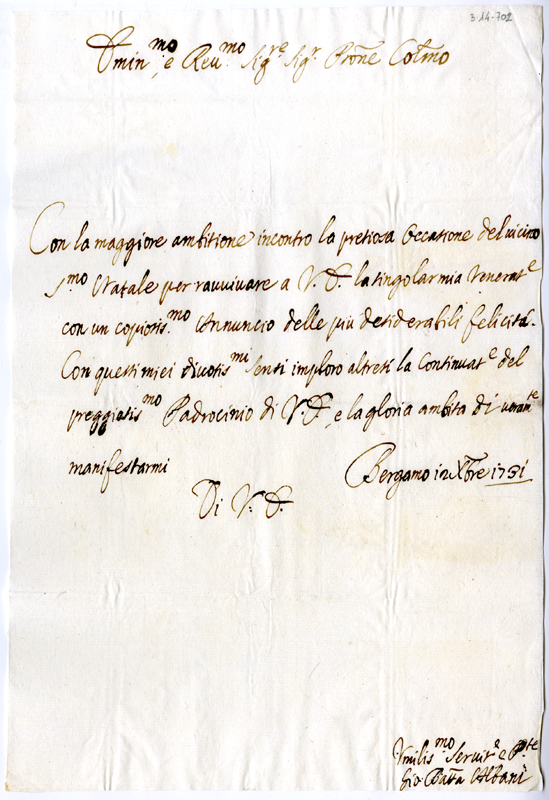 3-14-702
Emin.mo, e Reu.mo Sig.re Sig.r Prone Colmo
Con la maggiore ambitione incontro la pretiosa Occasione del uicino
S.mo Natale per rauuiuare a V. E. la singolar mia Venerat.e
con un copiosis.mo Annuncio delle più desiderabili felicità.
Con questi miei diuotis.mi Senti imploro altresì la Continuat.e del
preggiatis.mo Padrocinio di V. E., e la gloria ambita di uiuam.te
manifestarmi
Bergamo 12 Xbre 1731
Di V. E.
Vmilis.mo Seruit.e e
Gio Batta Albani